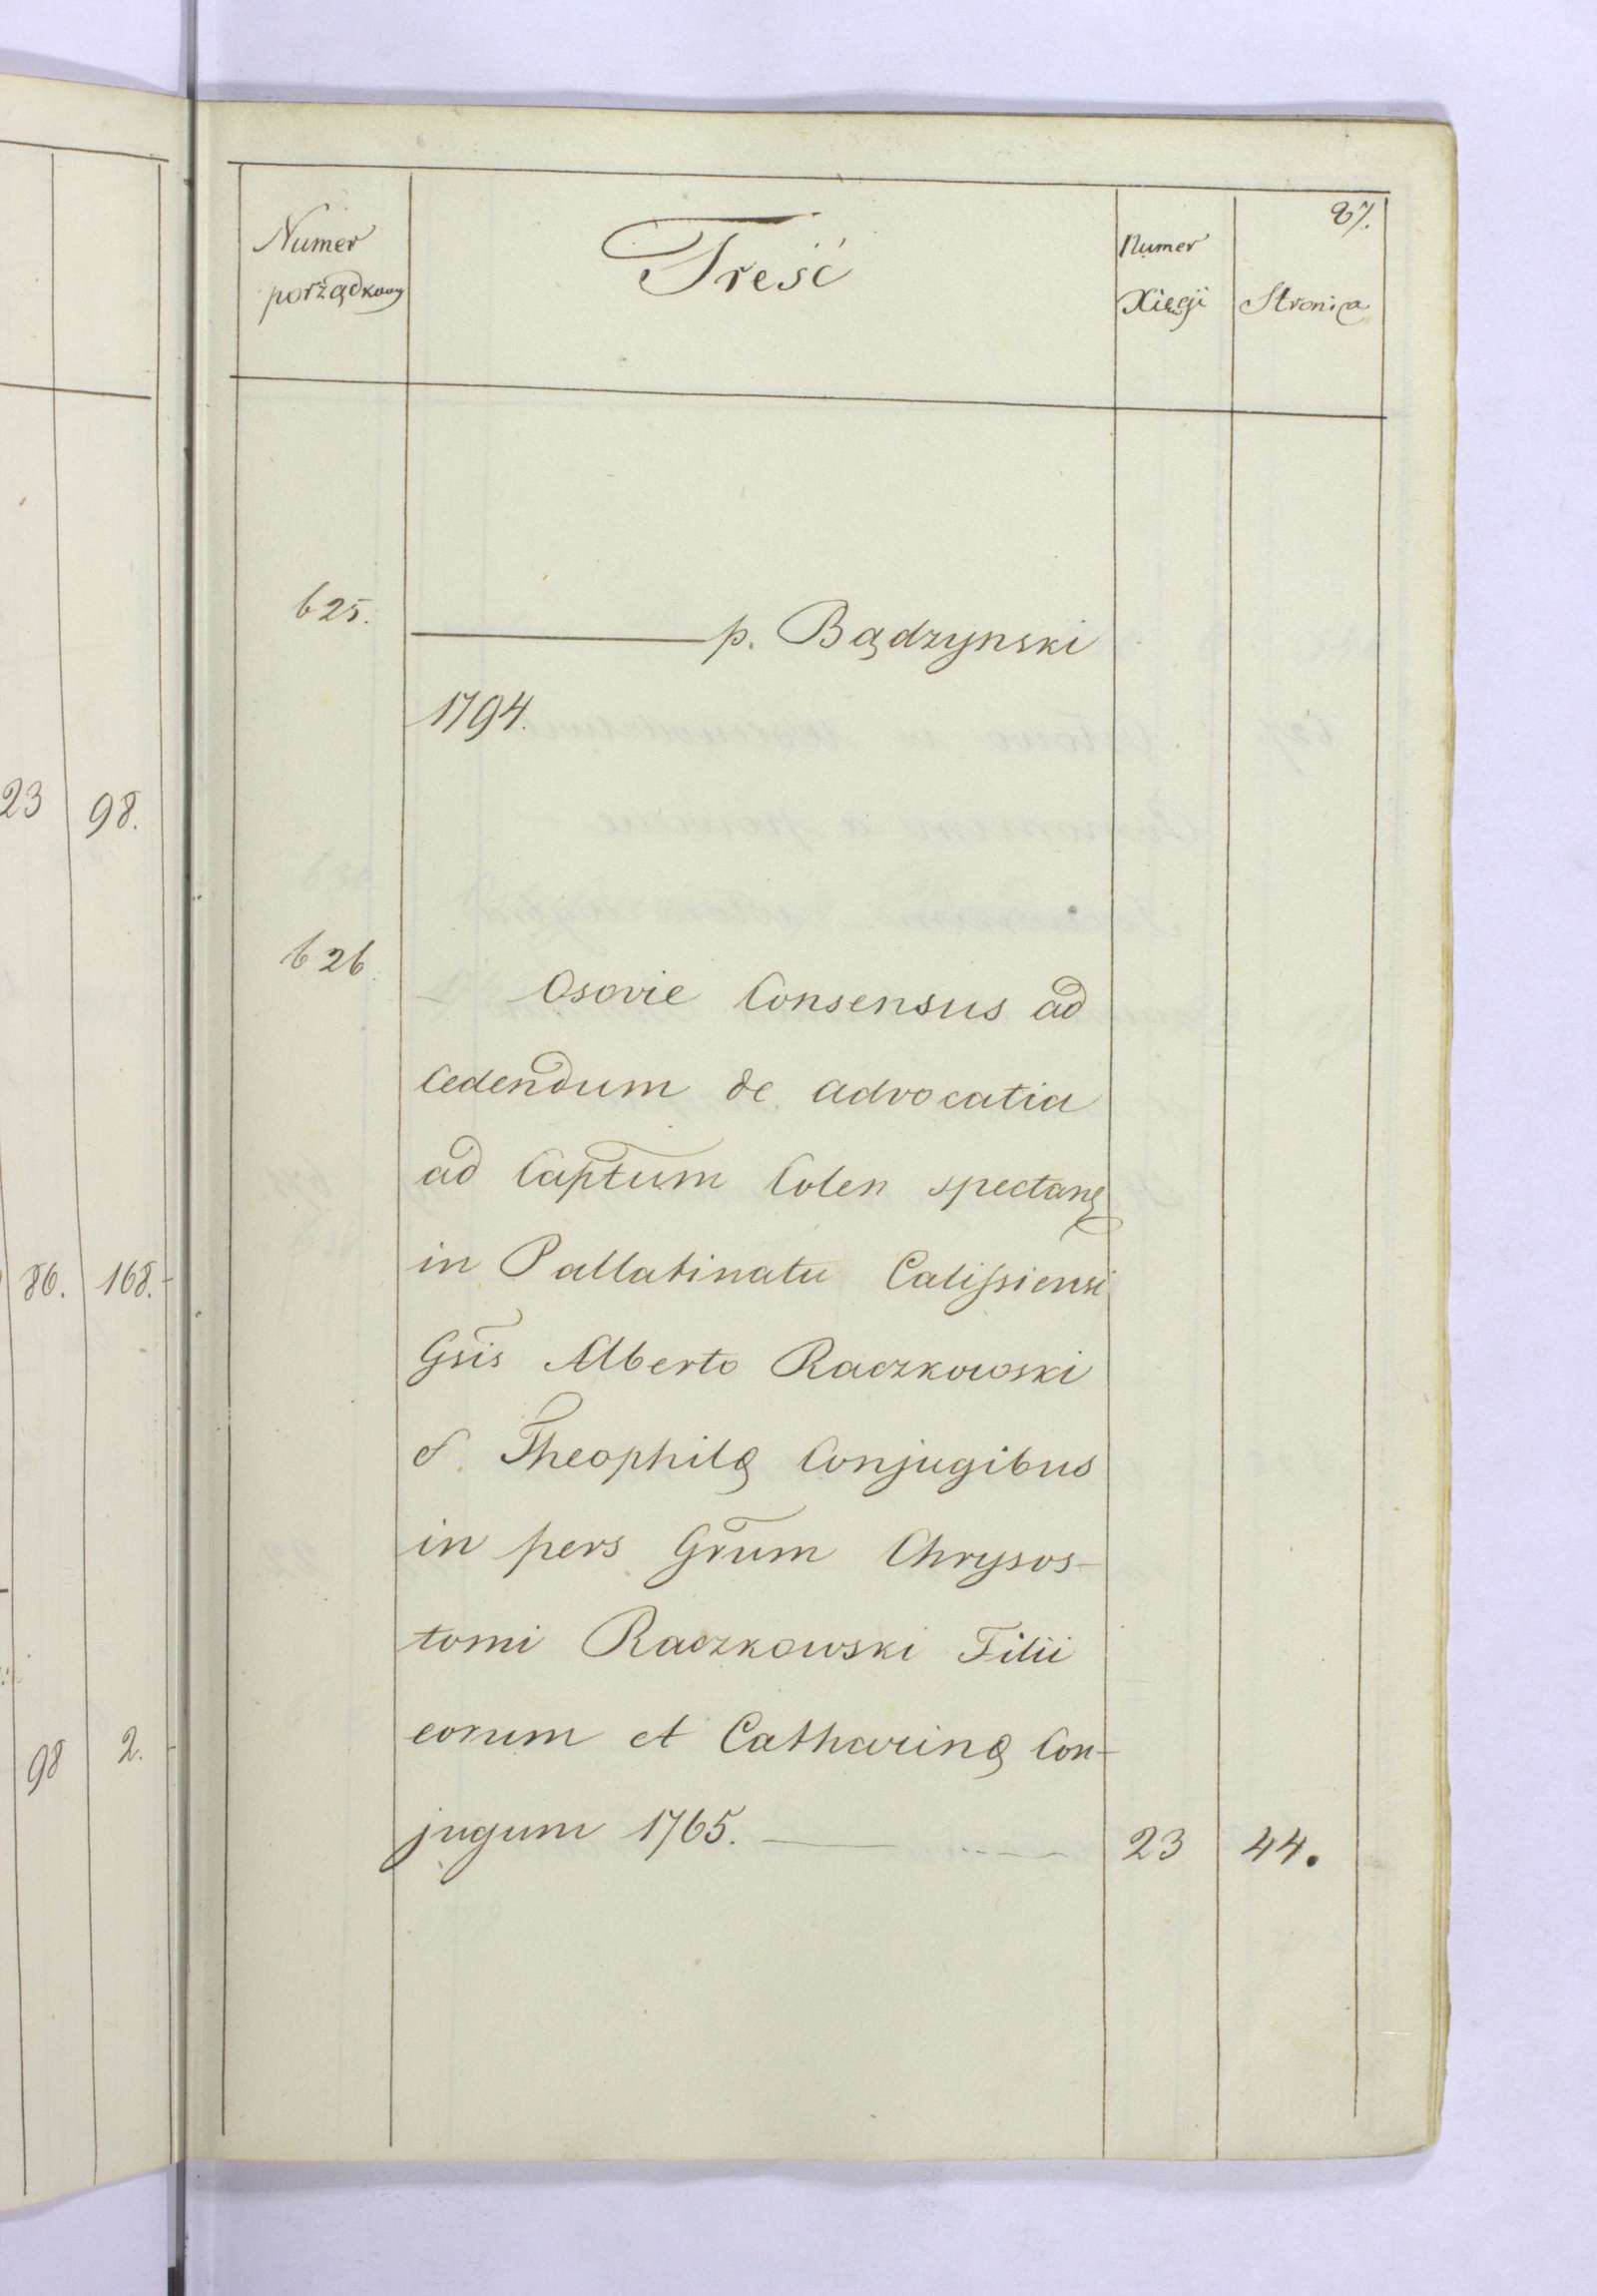 87.
Numer porządkowy
Treść
Numer Xięgi
Stronica
625.
p. Bądzynski
1794.
23 98.
626
Osovie Consensus ad
cedendum de advocatia
ad Captum Colen spectanę
86. 168.
in Pallatinatu Calissiensi
Gsis Alberto Raczkowski
& Theophilę Conjugibus
in pers Grum Chrysos-
tomi Raczkowski Filii
98 2.
eorum et Catharinę Con-
jugum 1765. 23 44.